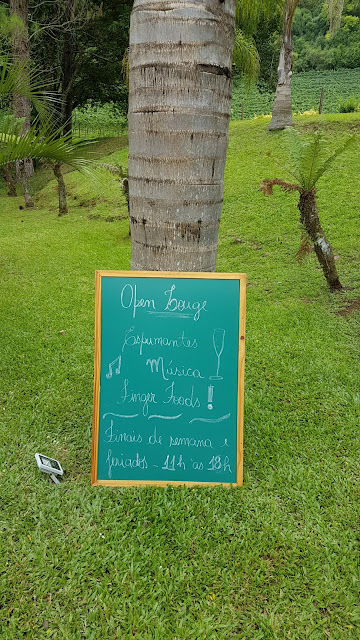 Open Louge
Espumantes
Música
Finger Foods !
Finais de semana e
feriados - 11h às 18h